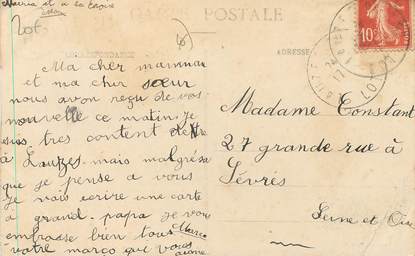 Mairie et à la Croix
Lot
CARTE POSTALE
CORRESPONDANCE
ADRESSE
Ma cher maman
et ma cher sœur
nous avon reçu de vos
nouvelle ce matin. Je
suis tres content d'etre
à Lauzes. mais malgré sa
que je pense a vous
je vais ecrire une carte
à grand-papa je vous
embrasse bien tous
votre marco que vous
aime
Madame Constant
27 grande rue à
Sèvres
Seine et Oise
10
LOT